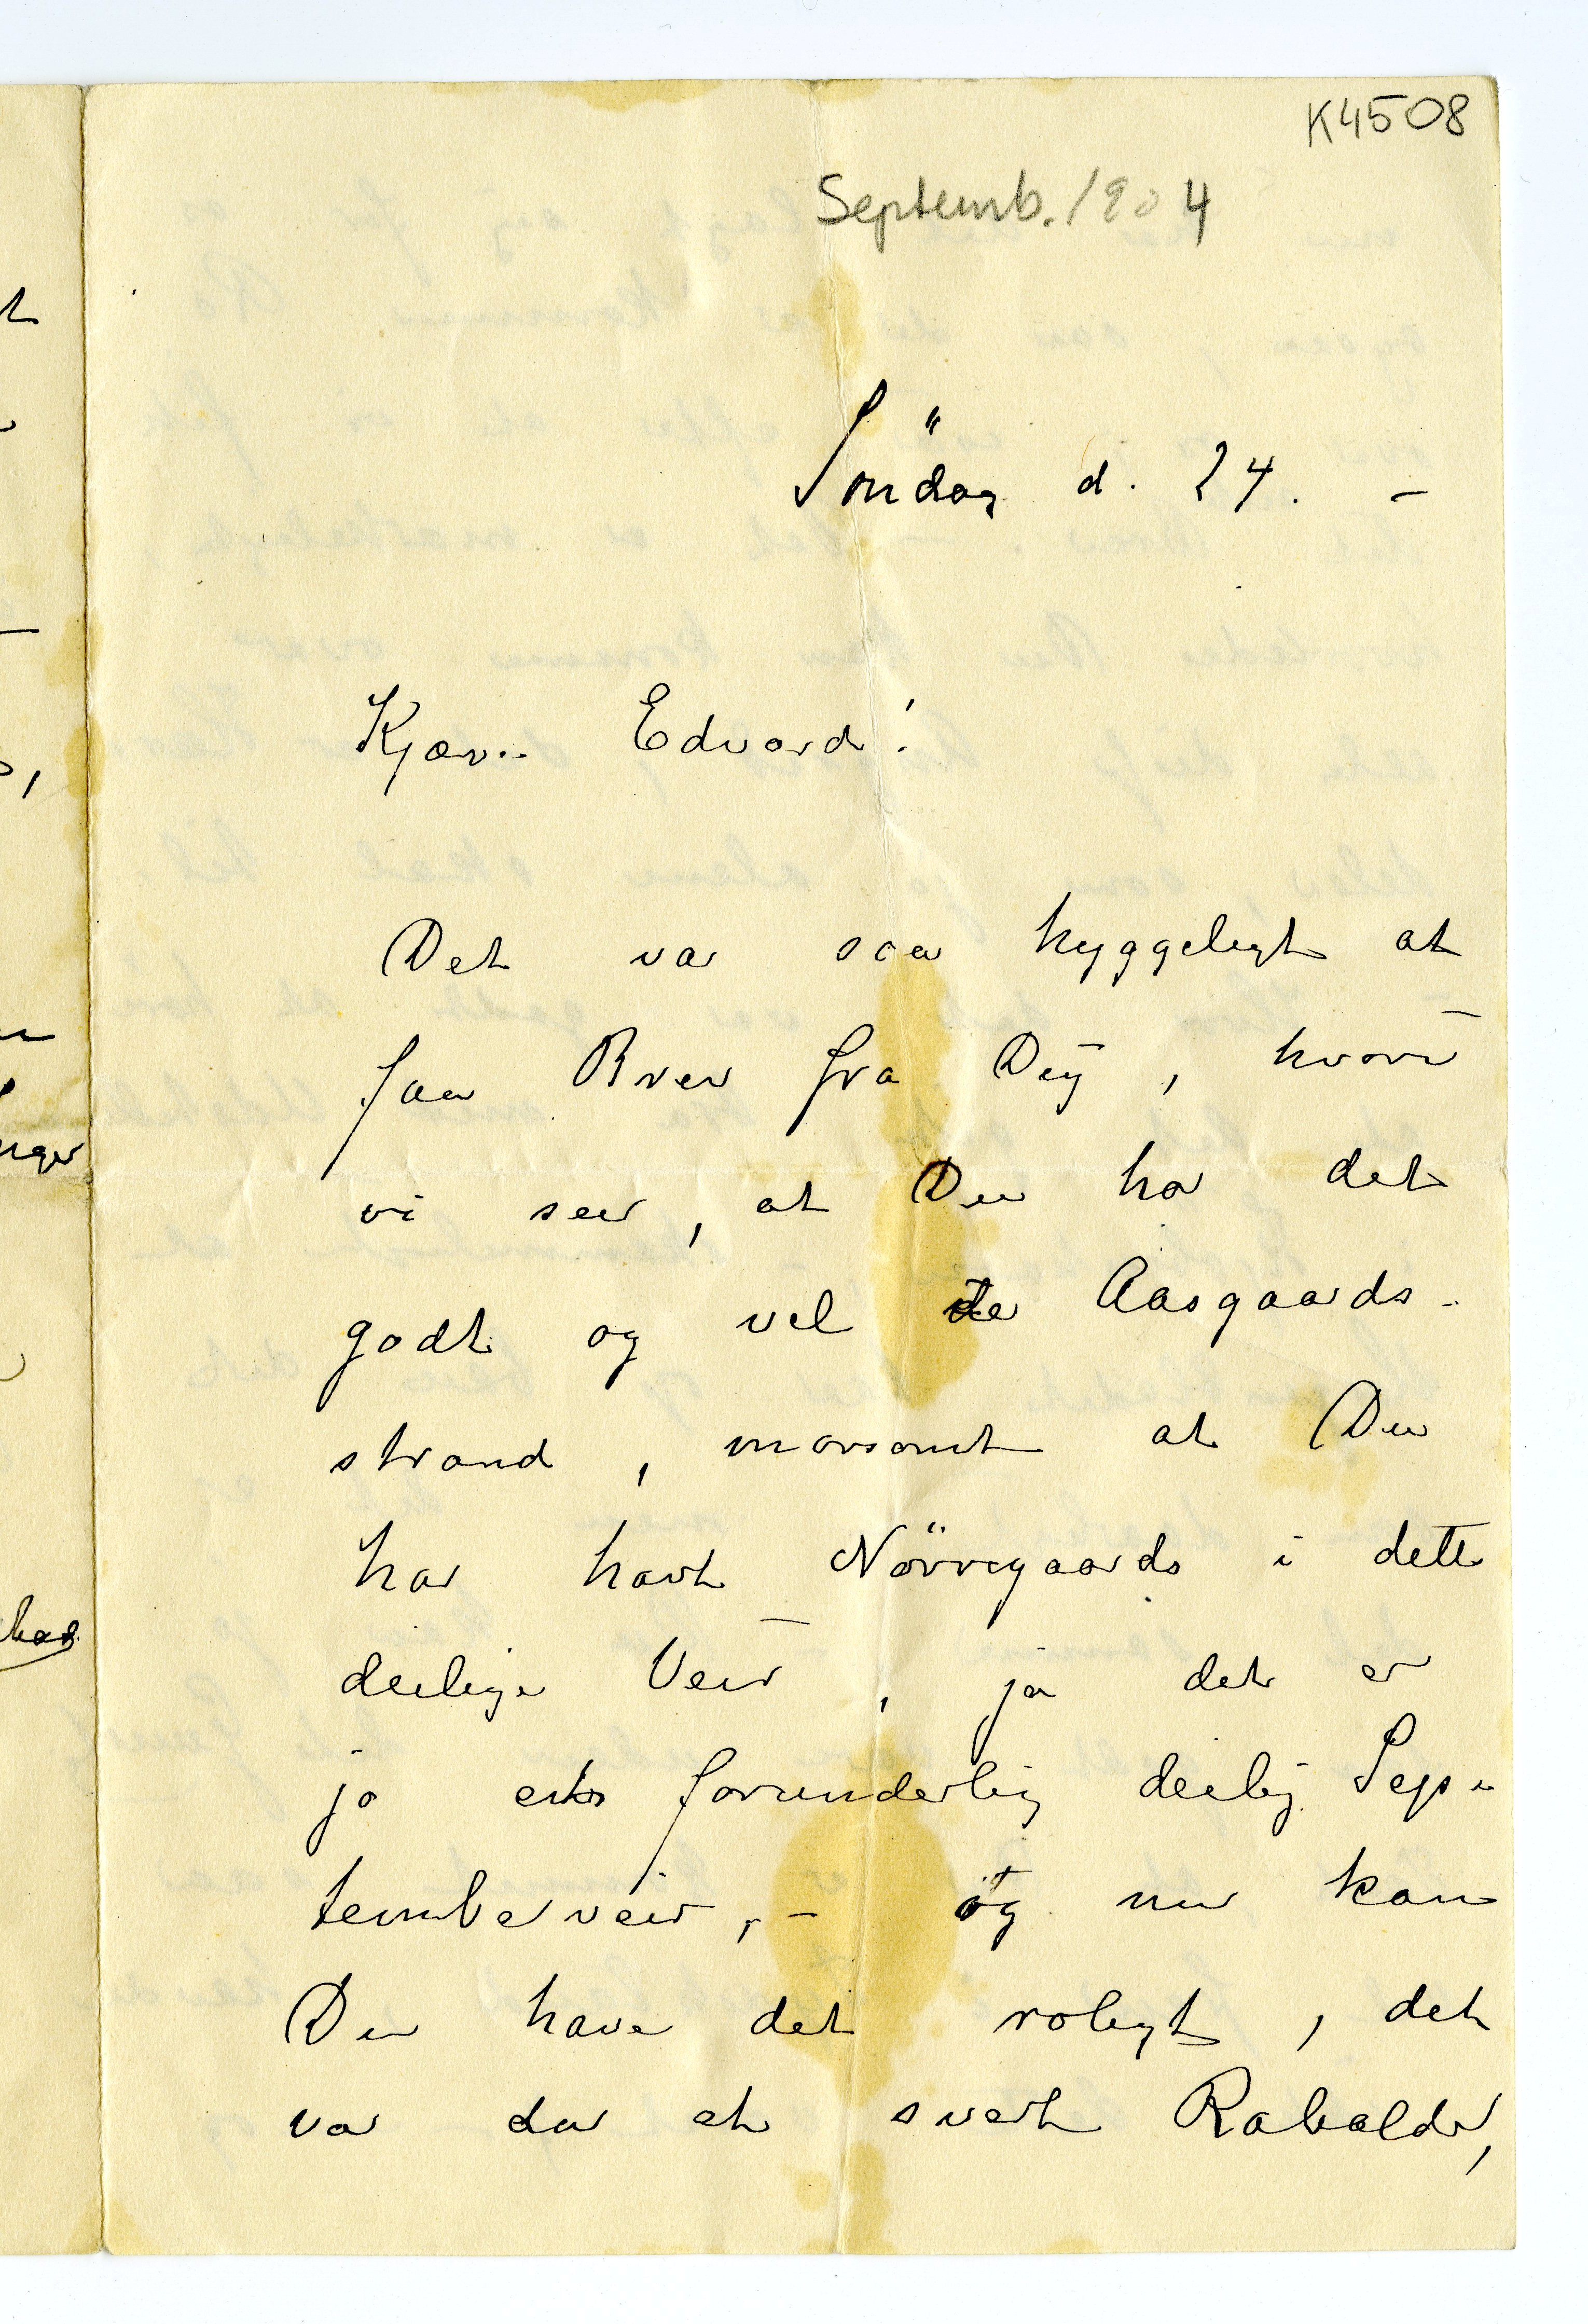 K4508
Septemb. 1904
Söndag d. 24. –
Kjære Edvard!
Det var saa hyggeligt at
faa Brev fra Dig, hvori
vi seer, at Du har det
godt og vel i Aasgaards-
strand, morsomt at Du
har havt Nörregaards i dette
deilige Veir, ja det er
jo et forunderlig deilig Sep-
temberveir, – og nu kan
Du have det roligt, det
var da et svært Rabalder,